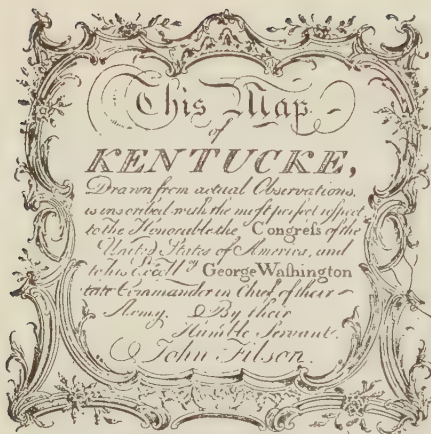 This Map
of
KENTUCKE,
Drawn from actual Observations,
is inscribed with the most perfect respect
to the Honorable the Congreſs of the
United States of America, and
to his Excell.cy George Waſhington
late Commander in Chief of their
Army. By their
Humble Servant.
John Filson.